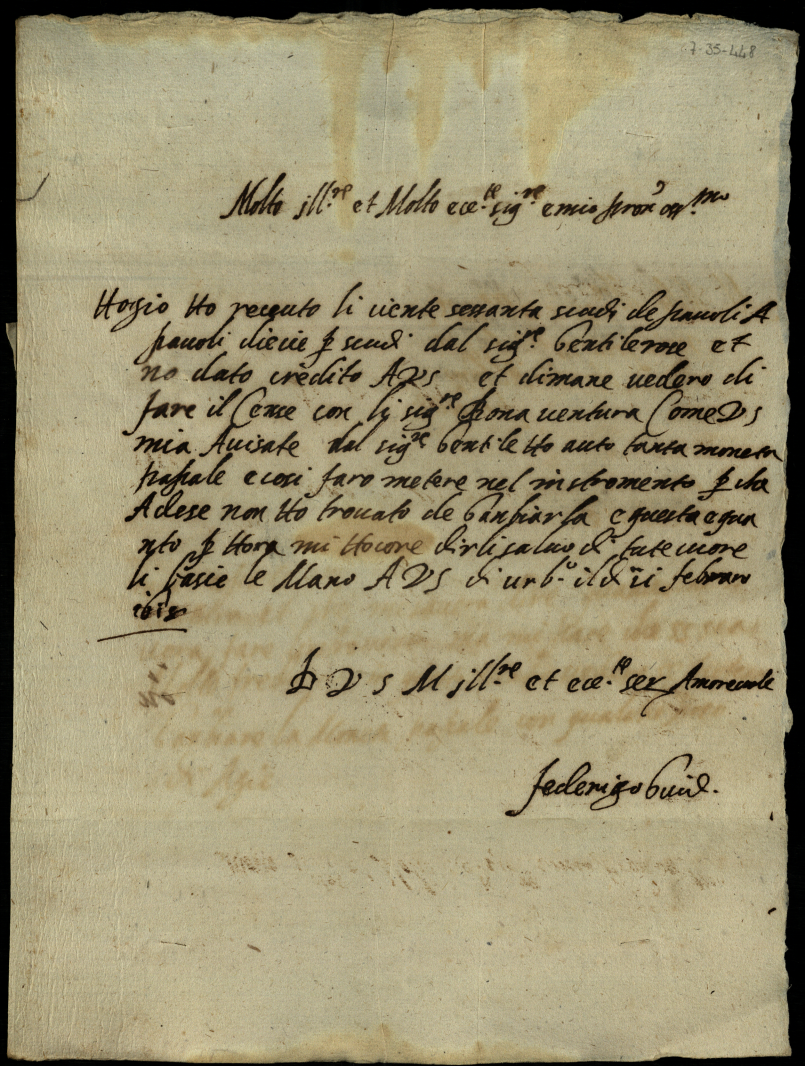 7-35-448
Molto jll.re et Molto ece.te sig.re e mio pron oss.mo
Hogio Ho receuto li ciente sessanta scudi de pauoli A
pauoli diecie p scudi dal sig.re Gentilerose et
no dato credito A V S et dimane vedero di
fare il Cense con li sig.ri Bona ventura Come V S
mia Auisate dal sig.re Gentile Ho auto tanta moneta
papale e cosi faro metere nel instromento p che
Adese non Ho trouato de Ganbiarla e questa e qua
nto p Hora mi Hocore dirli saluo di tute cuore
li basie le Mano A V S di urb.o il di 21 febraro
D V S M jll.re et ece.te ser Amoreuole
federigo Guid.